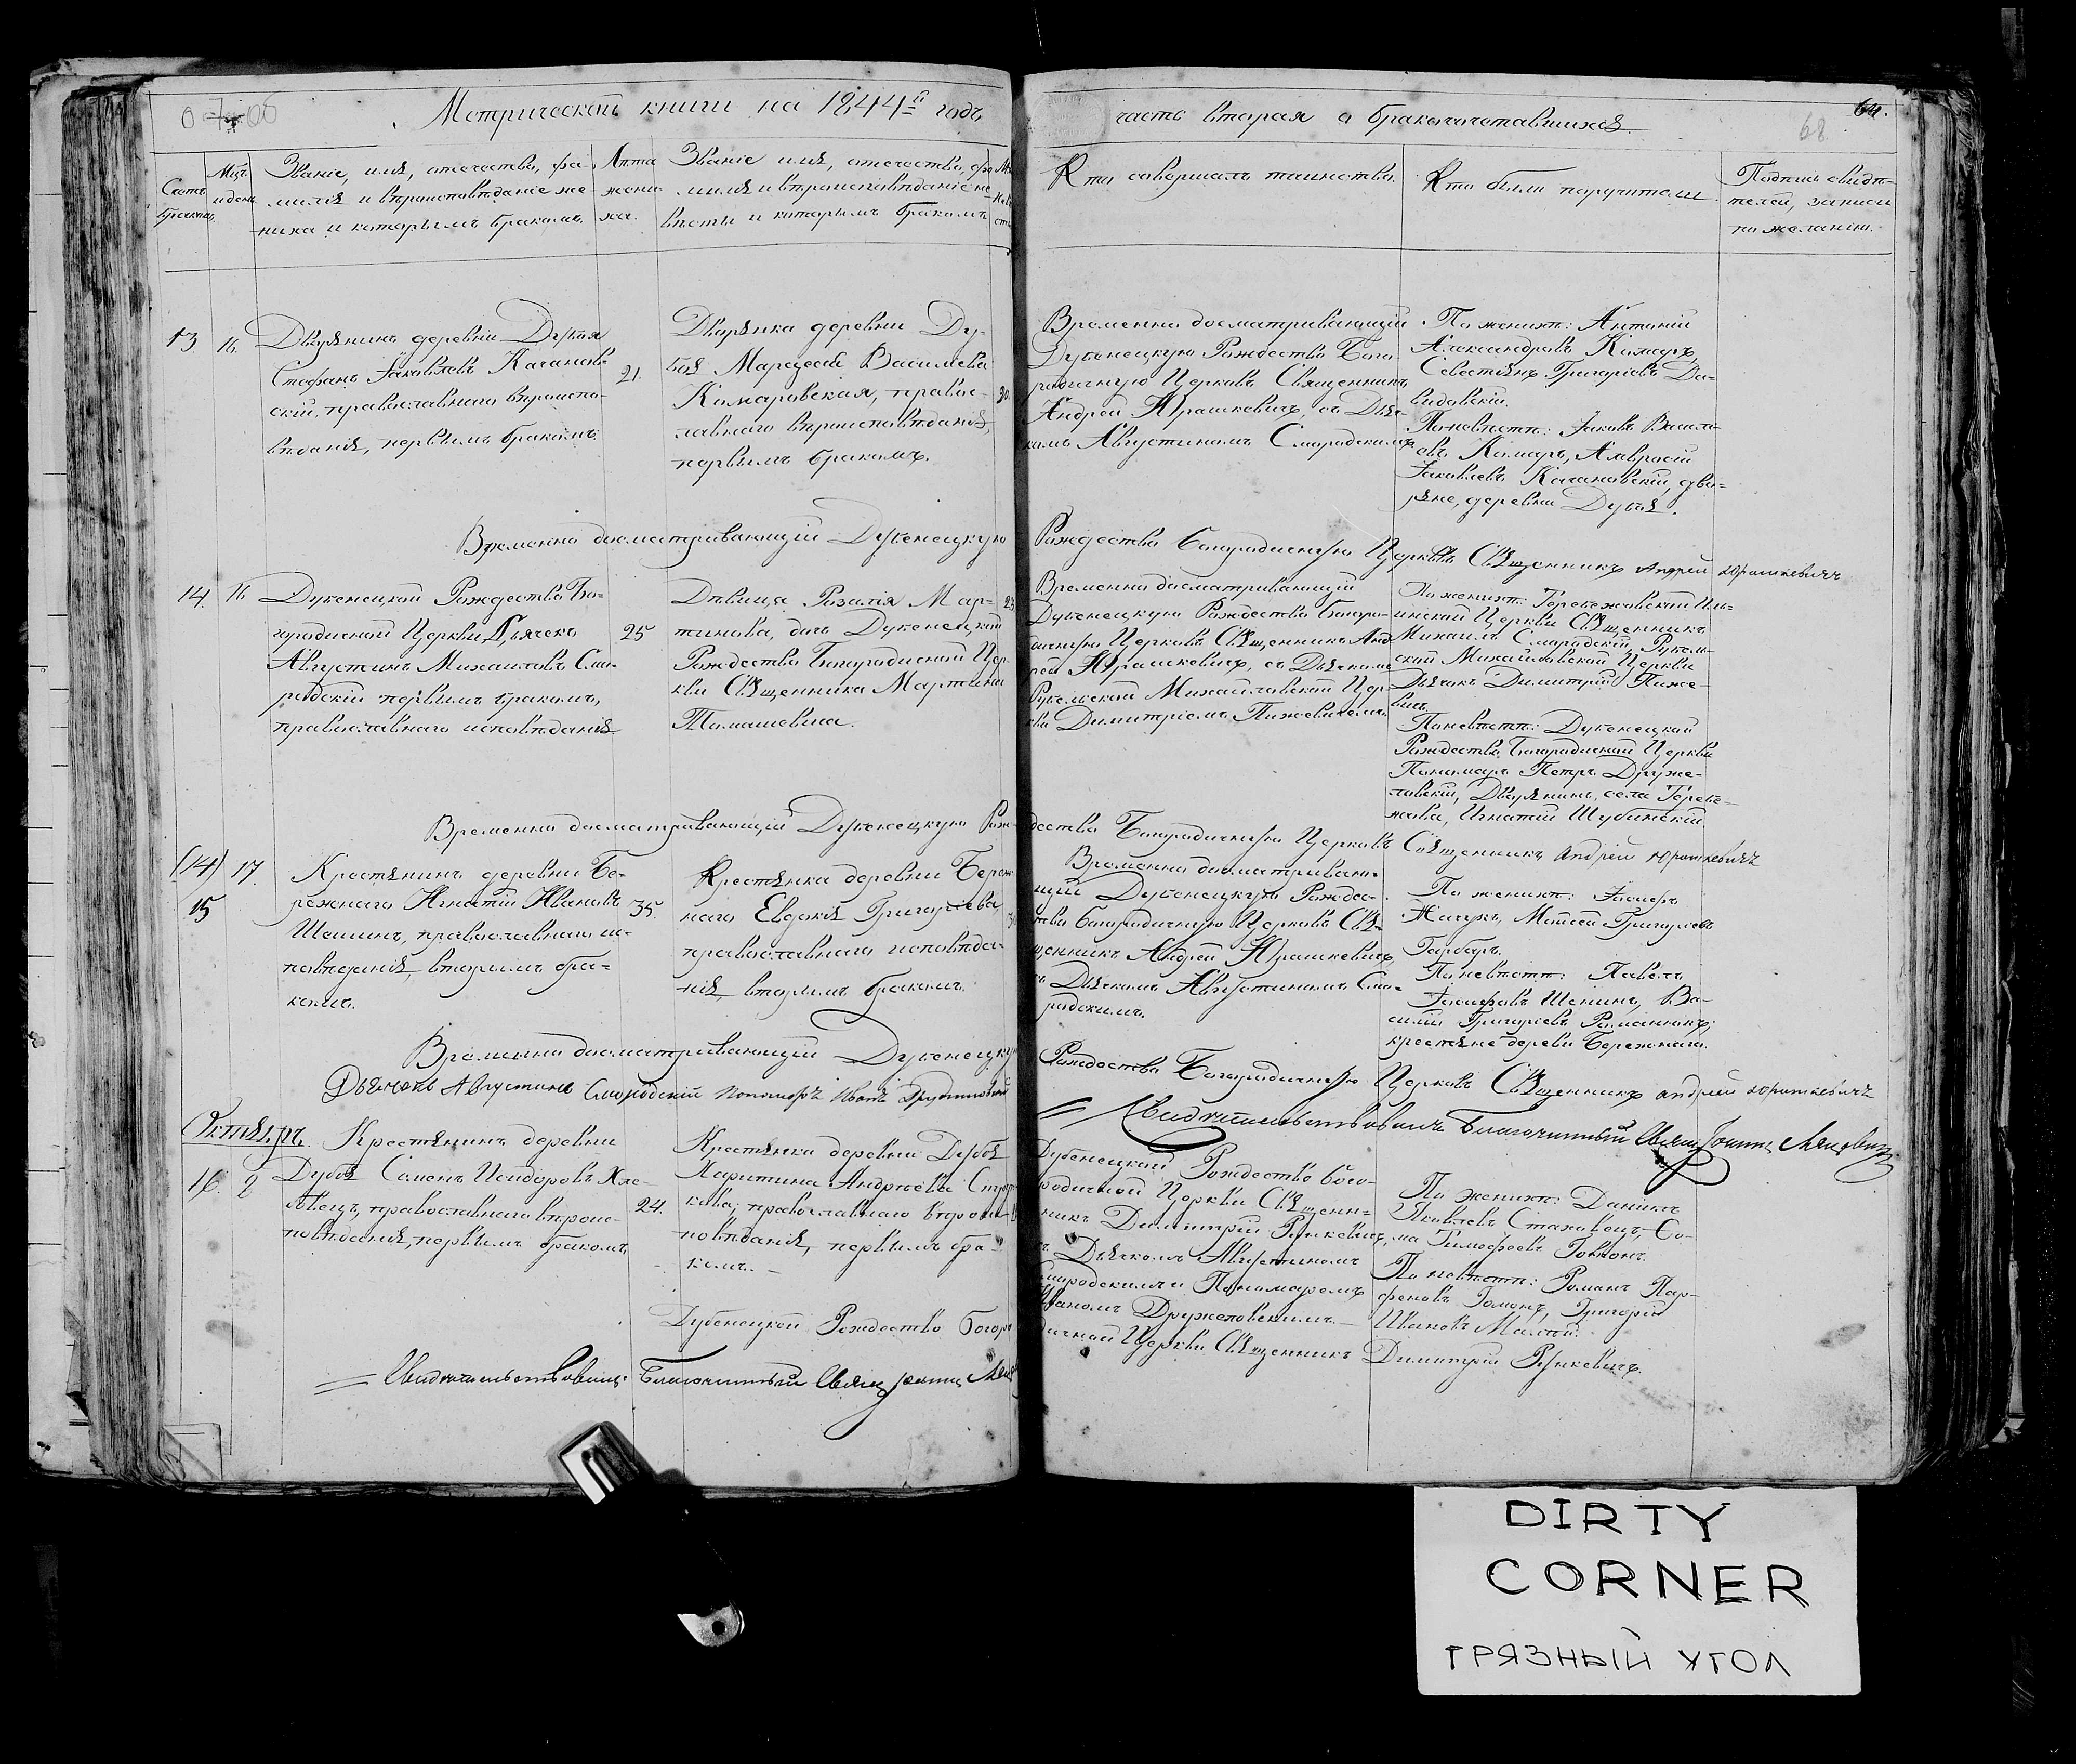 Метрической книги на 1844й годъ
часть вторая о бракосочетавшихся.
68
Счетъ браковъ
Мцъ и день
Званіе, имя, отчество, фа-
милія и вѣроисповѣданіе же-
ниха и которымъ бракомъ.
Лѣта
жени-
ха.
Званіе имя, отчество, фа-
милія и вѣроисповѣданіе не-
вѣсты и которымъ бракомъ
Кто совершалъ таинство.
Кто были поручители.
Подпись свидѣ-
телей, записи
по желанію.
13
16.
Дворянинъ деревни Дубоя
Стефанъ Іаковлевъ Качанов-
скій, православнаго вѣроиспо-
вѣданія, первымъ бракомъ.
21.
Дворянка деревни Ду-
боя Василіева
Комаровская, правос-
лавнаго вѣроисповѣданія,
первымъ бракомъ.
20.
Временно досматривающій
Дубенецкую Рождество Бого-
родичную Церковь Священникъ
Андрей Юрашкевичъ, съ Дьяч-
комъ Августиномъ Смородскимъ
По женихѣ: Антоній
Александровъ Комаръ,
Севестіянъ Григоріевъ Да-
видовскій.
По невѣстѣ: Іаковъ Васили-
евъ Комаръ, Амвросій
Іаковлевъ Качановскій, дво-
ряне, деревни Дубоя.
Временно досматривающій Дубенецкую Рождество Богородичную Церковь Священникъ Андрей Юрашкевичъ
14.
16
Дубенецкой Рождество Бо-
городичной Церкви Дьячекъ
Августинъ Михаиловъ Смо-
родскій первымъ бракомъ,
православнаго исповѣданія
25
Дѣвица Розалія Мар-
тинова, дочь Дубенецкой
Рождество Богородичной Цер-
кви Священника Мартина
Томашевича.
23
Временно досматривающій
Дубенецкую Рождество Богоро-
дичную Церковь Священникъ Анд-
рей Юрашкевичъ, съ Дьячкомъ
Рубельской Михайловской Цер-
кви Димитріемъ Пижевичемъ.
По женихѣ: Теребежовской Иль-
инской Церкви Священникъ
Михаилъ Смородскій, Рубель-
ской Михайловской Церкви
Дьячекъ Димитрій Пиже-
вичъ.
По невѣстѣ: Дубенецкой
Рождество Богородичной Церкви
Пономарь Петръ Друже-
ловскій, Дворянинъ села Теребе-
жова, Игнатій Шубинскій.
Временно досматривающій Дубенецкую Рождество Богородичную Церковь Священникъ Андрей Юрашкевичъ
(14)
17.
15
Крестянинъ деревни Бе-
режнаго Игнатій Ивановъ
Шешинъ, православнаго ис-
повѣданія, вторымъ бра-
комъ.
35.
Крестянка деревни Береж-
наго Евдокія Григоріева,
православнаго исповѣда-
нія вторымъ бракомъ.
Временно досматриваю-
щій Дубенецкую Рождес-
тво Богородичную Церковь Свя-
щенникъ Андрей Юрашкевичъ,
съ Дьячкомъ Августиномъ Смо-
родскимъ.
По женихѣ: Іосифъ
Моисей Григоріевъ
Гарбаръ.
По невѣстѣ: Павелъ
Іосифовъ Шешинъ, Ва-
силій Григоріевъ Романчикъ,
крестяне дереви Бережнаго.
Временно досматривающій Дубенецкую Рождество Богородичную Церковь Священникъ Андрей Юрашкевичъ
Дьячекъ Августинъ Смородскій Пономарь Иванъ Дружиловскій
Свидѣтельствовалъ Благочинный Свящ Іоаннъ
Октябрь.
16.
2
Крестянинъ деревни
Дубоя Семенъ Исидоровъ Хле-
православнаго вѣроис-
повѣданія, первымъ бракомъ
24.
Крестянка деревни Дубоя
Харитина Андреева
православнаго вѣроис-
повѣданія, первымъ бра-
комъ.
Дубенецкой Рождество Бого-
родичной Церкви Священ-
никъ Димитрій Рункевичъ,
съ Дьячкомъ Августиномъ
Смородскимъ и Пономаремъ
Иваномъ Дружиловскимъ.
По женихѣ: Даніилъ
Яковлевъ Стаховецъ, Фо-
ма Тимофеевъ
По невѣстѣ: Романъ Пар-
феновъ Григорій
Ивановъ
Дубенецкой Рождество Богородичной Церкви Священникъ Димитрій Рункевичъ.
Свидѣтельствовалъ Благочинный Свящ Іоаннъ
DIRTY
CORNER
ГРЯЗНЫЙ УГОЛ